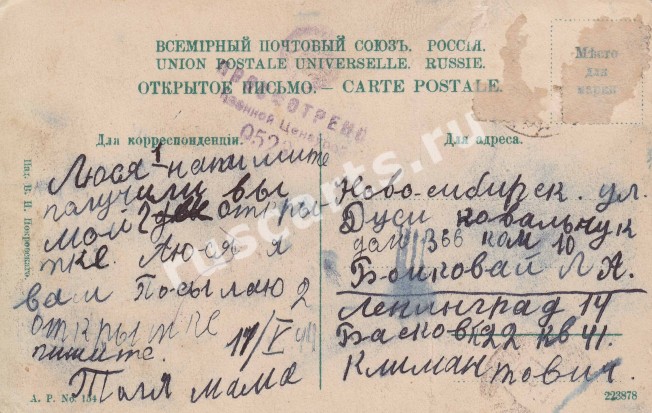 ВСЕМІРНЫЙ ПОЧТОВЫЙ СОЮЗЪ. РОССІЯ.
UNION POSTALE UNIVERSELLE. RUSSIE.
ОТКРЫТОЕ ПИСЬМО. — CARTE POSTALE.
Мѣсто
для
марки
ПРОСМОТРЕНО
Военной Цензурой
052
Для корреспонденціи.
Для адреса.
Люся 1 напишите
получили вы
мой 2 откры
тке. Люся я
вам посылаю 2
открытке
пишите. 17/V
Толя мама
Новосибирск. ул.
Дуси Ковальчук
дом 366 ком 10
Бойковай Л А.
Ленинград 14
Басков 22 кв 41.
Климан тович.
А. Р. No. 134
223878
ruscarts.ru